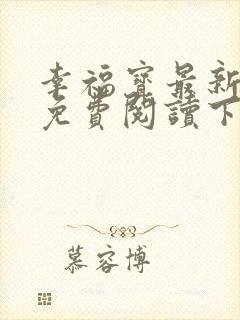 幸福寶最新
免費閱讀下
慕容博